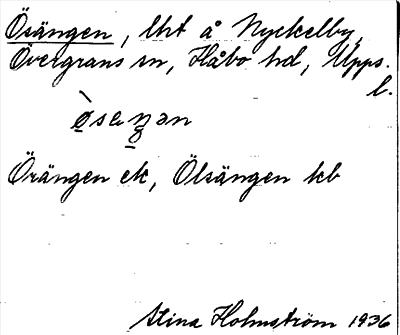 Ösängen, lht å Nyckelby,
Övergrans sn, Håbo hd, Upps.
l.
ö̀seŋən
Örängen ek, Ölsängen kb
Stina Holmström 1936